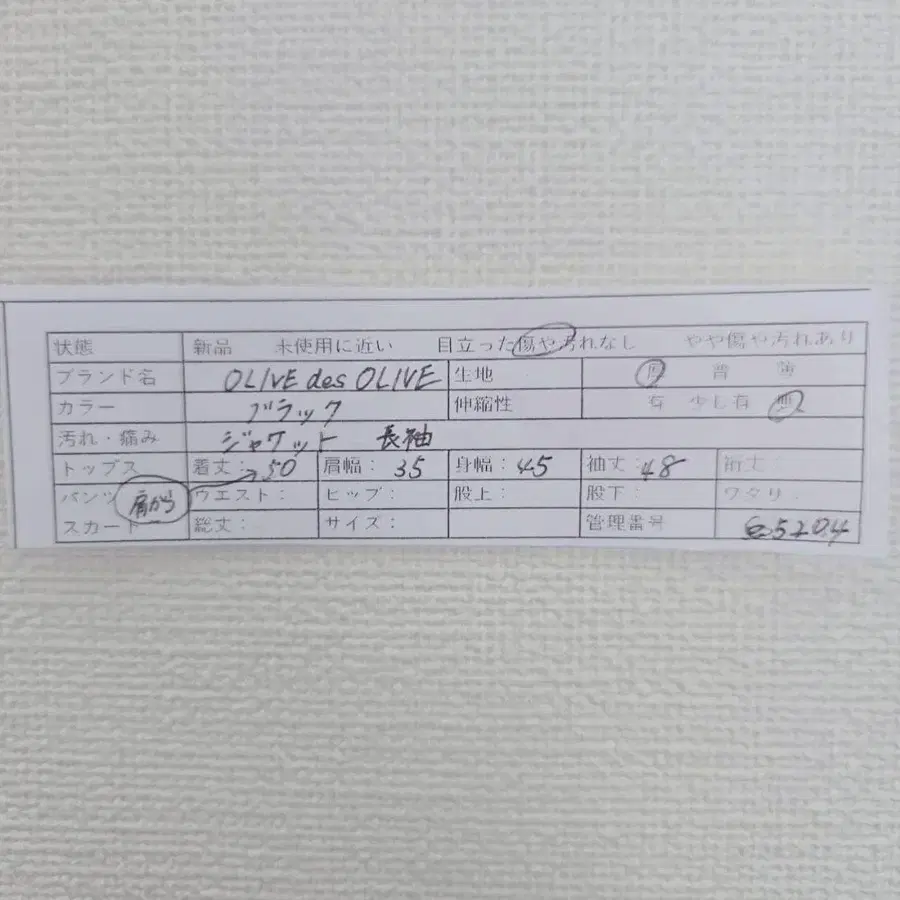 状態 新品 未使用に近い 目立った傷や汚れなし やや傷や汚れあり
ブランド名 OLIVE des OLIVE 生地 厚 普 薄
カラー ブラック 伸縮性 有 少し有 無
汚れ・痛み ジャケット 長袖
トップス 着丈: 50 肩幅: 35 身幅: 45 袖丈: 48 裄丈:
パンツ 肩から ウエスト: ヒップ: 股上: 股下: ワタリ:
スカート 総丈: サイズ: 管理番号